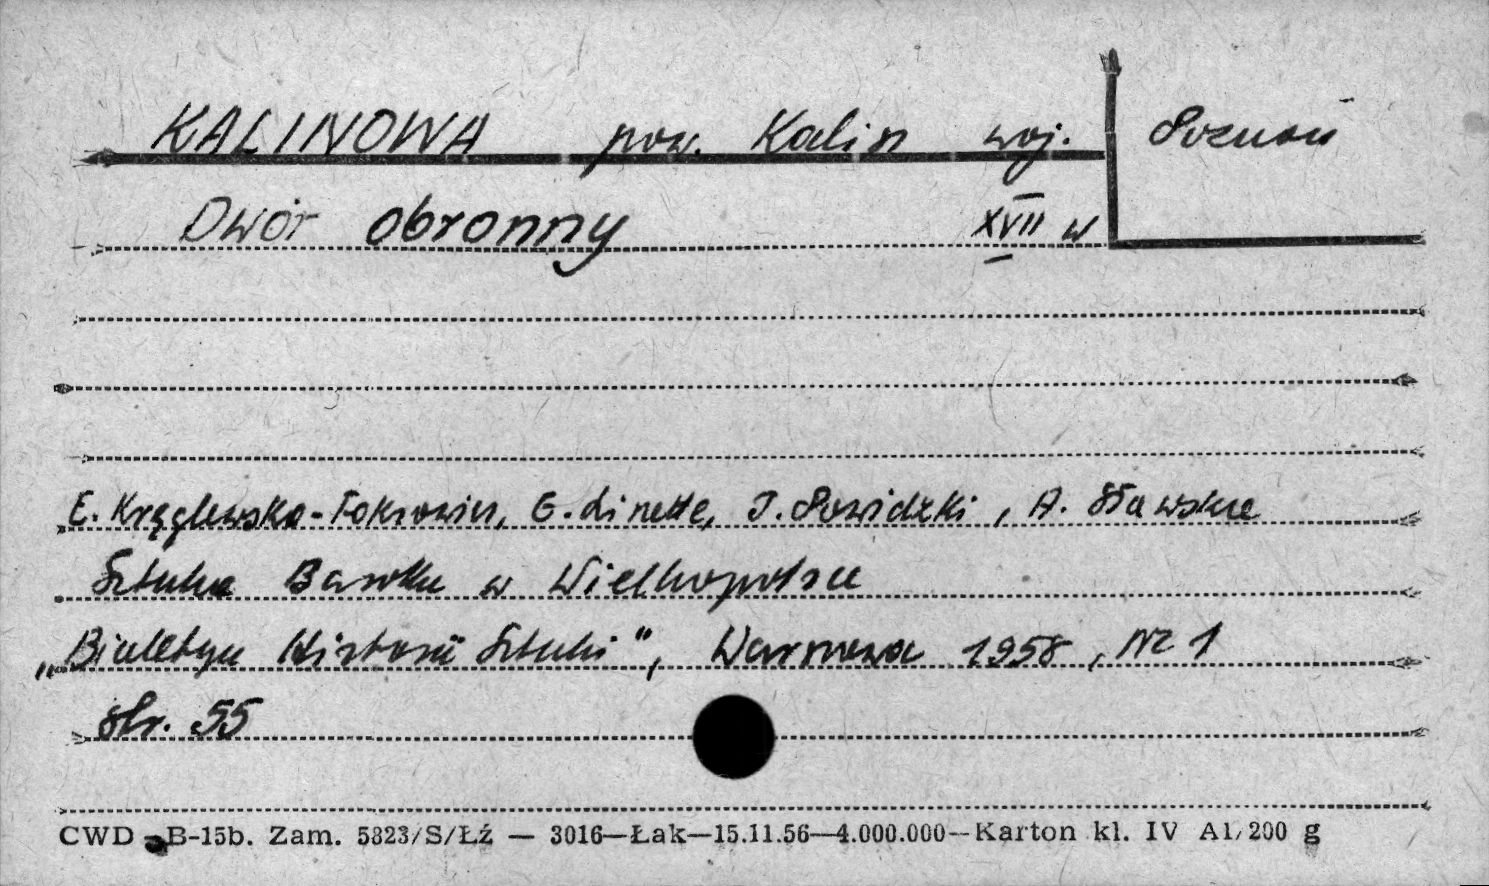 KALINOWA pow. Kalisz woj. Poznań
Dwór obronny XVII w
E. Kręglewska-Foksowicz, E. Linette, J. Powidzki, A. Sławska
Sztuka Baroku w Wielkopolsce
„Biuletyn Historii Sztuki", Warszawa 1958, Nr 1
str. 55
CWD B-15b. Zam. 5823/S/Łź — 3016—Łak—15.11.56—4.000.000—Karton kl. IV A1/200 g